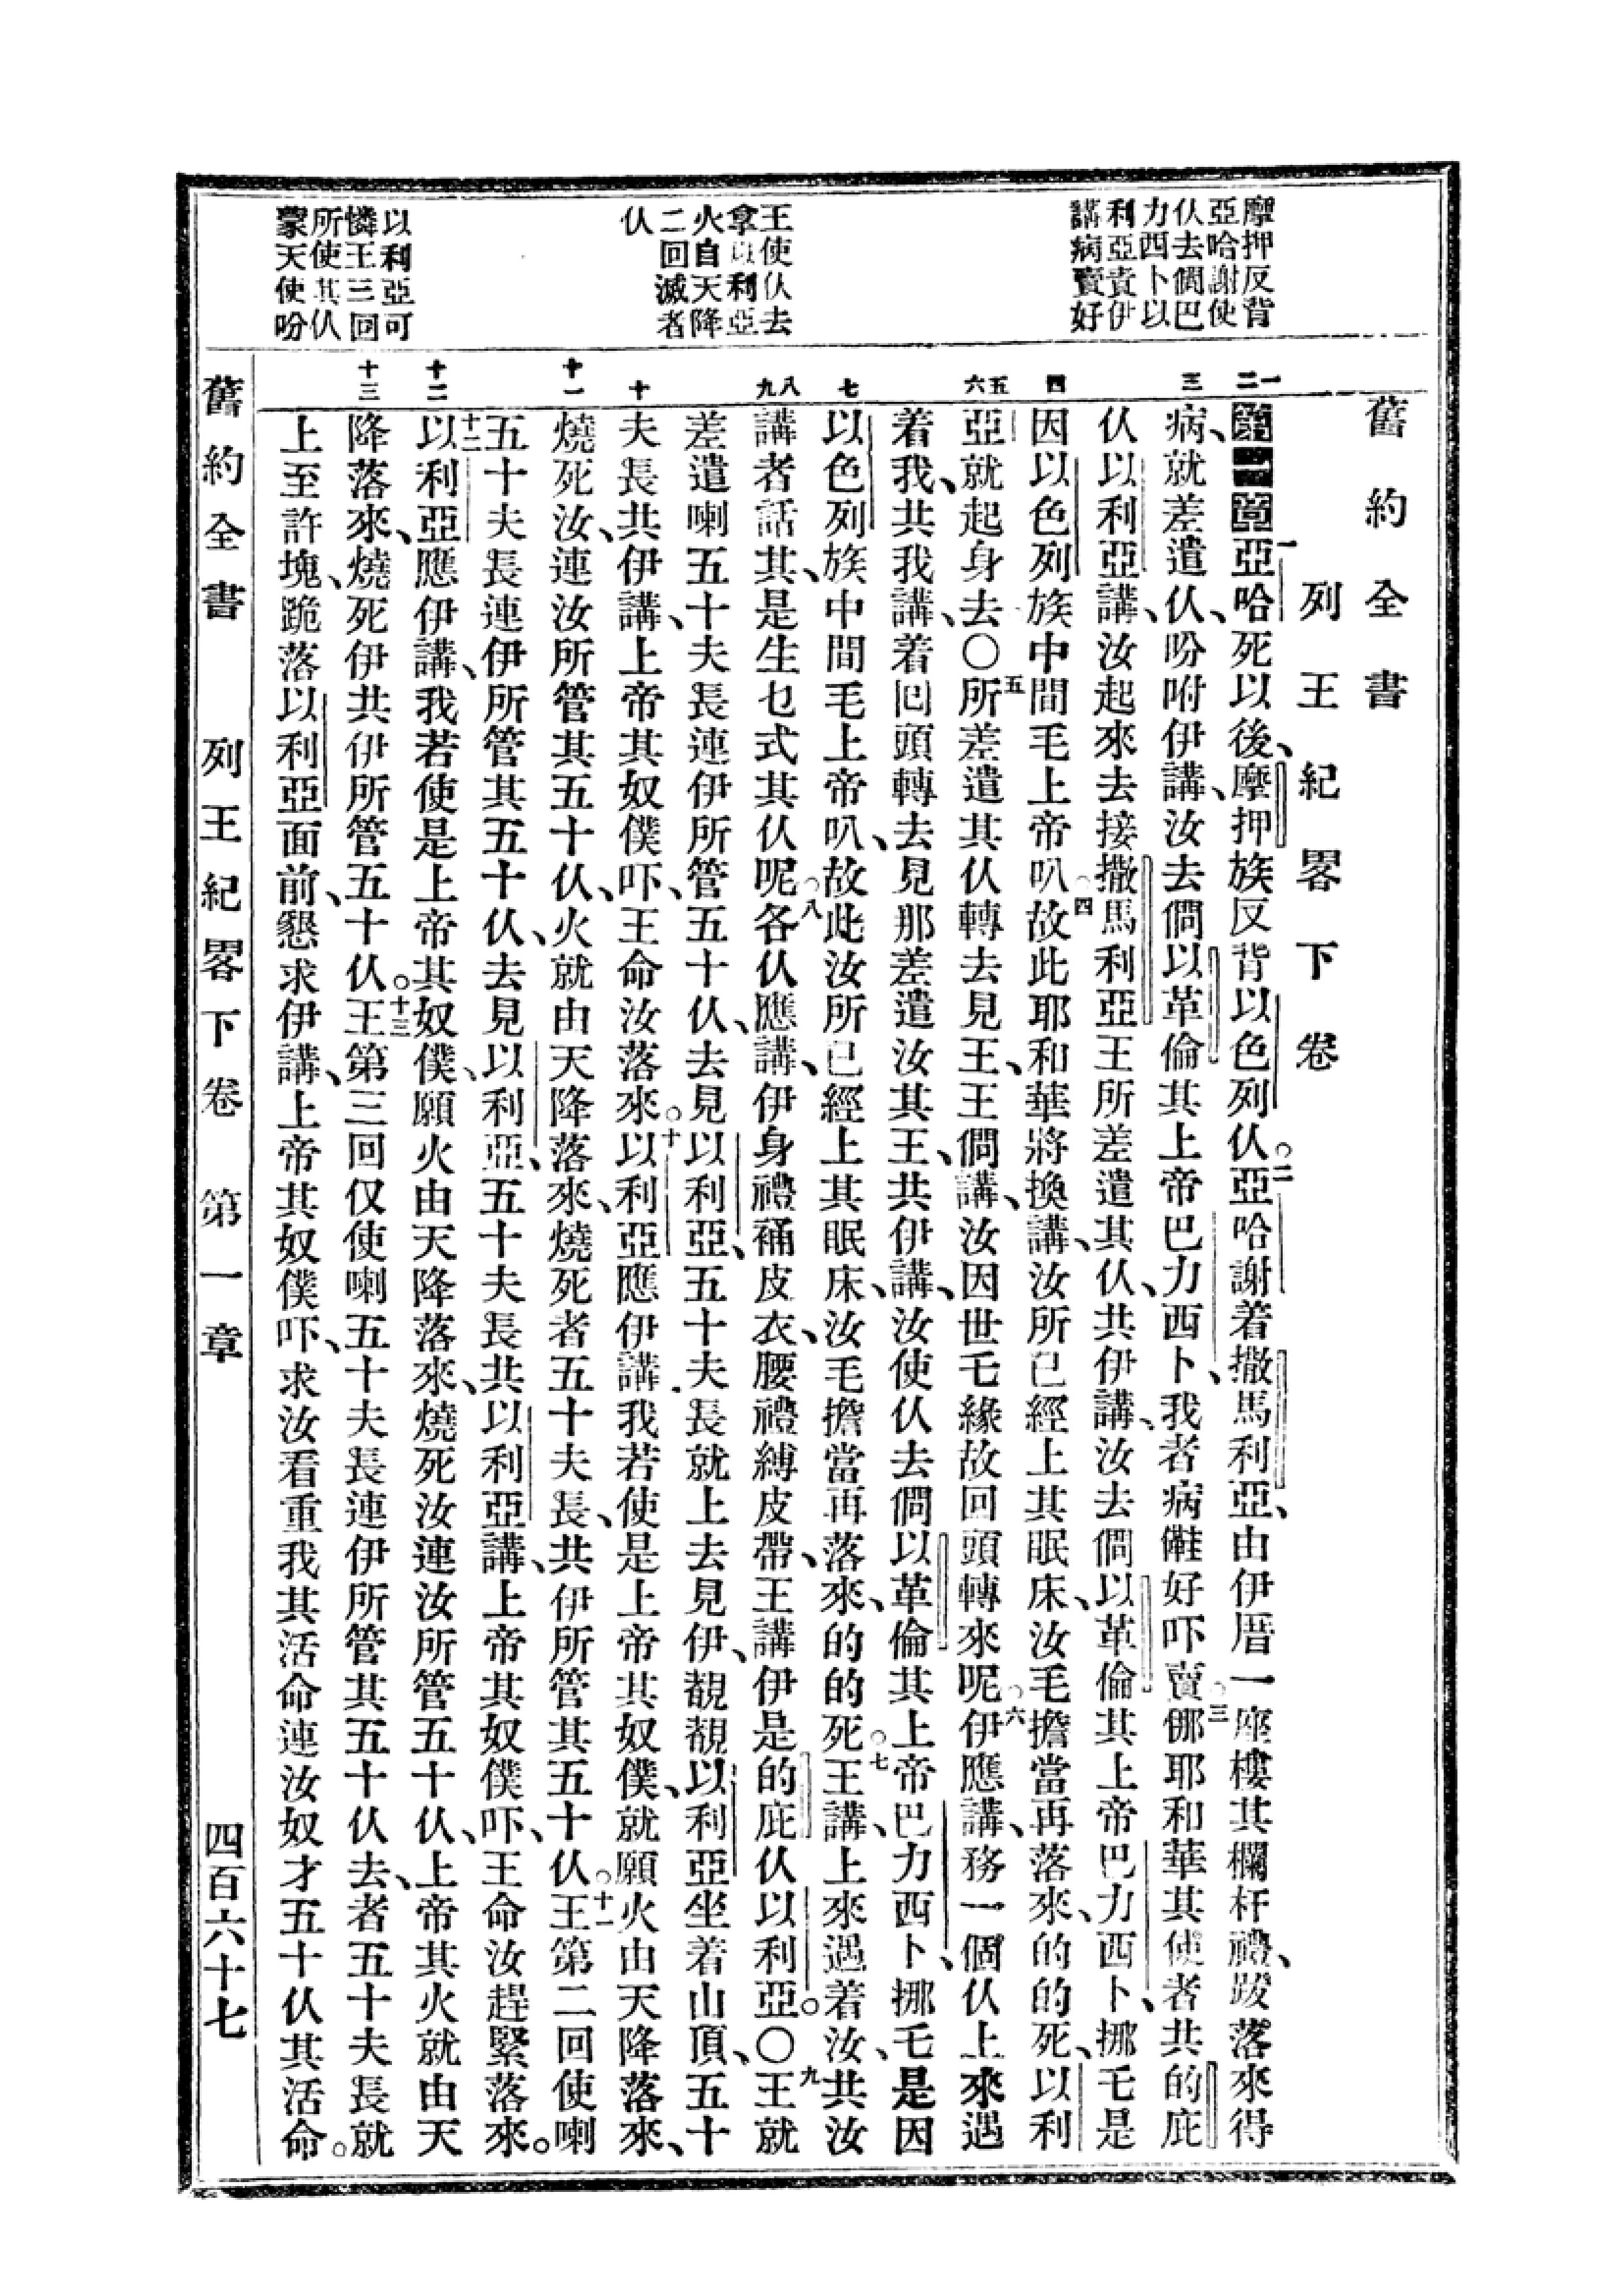 舊約全書
列王紀畧下卷
摩押反背
亞哈謝使
仈去僩巴
力西卜以
利亞責伊
講病賣好
王使仈去
拿以利亞
火自天降
二回滅者
仈
以利亞可
憐王三回
所使其仈
蒙天使吩
一二
三
四
五六
七
八九
十
十一
十二
十三
第一章一亞哈死以後、摩押族反背以色列仈。二亞哈謝着撒馬利亞、由伊厝一座樓其欄杆禮、跋落來得
病、就差遣仈、吩咐伊講、汝去僩以革倫其上帝巴力西卜、我者病儺好吓賣。三㑚耶和華其使者共的庇
仈以利亞講、汝起來去接撒馬利亞王所差遣其仈、共伊講、汝去僩以革倫其上帝巴力西卜、挪乇是
因以色列族中間毛上帝叭。四故此耶和華將換講、汝所已經上其眠床、汝毛擔當再落來、的的死、以利
亞就起身去〇五所差遣其仈轉去見王、王僩講、汝因世乇緣故回頭轉來呢。六伊應講、務一個仈上來遇
着我、共我講、着囘頭轉去見那差遣汝其王、共伊講、汝使仈去僩以革倫其上帝巴力西卜、挪乇是因
以色列族中間毛上帝叭、故此汝所已經上其眠床、汝毛擔當再落來、的的死。七王講、上來遇着汝、共汝
講者話其、是生乜式其仈呢。八各仈應講、伊身禮䘄皮衣、腰禮縛皮帶、王講伊是的庇仈以利亞。〇九王就
差遣喇五十夫長連伊所管五十仈、去見以利亞、五十夫長就上去見伊、覩覩以利亞坐着山頂、五十
夫長共伊講、上帝其奴僕吓、王命汝落來。十以利亞應伊講、我若使是上帝其奴僕、就願火由天降落來、
燒死汝、連汝所管其五十仈、火就由天降落來、燒死者五十夫長、共伊所管其五十仈。十一王第二回使喇
五十夫長連伊所管其五十仈、去見以利亞、五十夫長共以利亞講、上帝其奴僕吓、王命汝趕緊落來。
十二以利亞應伊講、我若使是上帝其奴僕、願火由天降落來、燒死汝連汝所管五十仈、上帝其火就由天
降落來、燒死伊共伊所管五十仈。十三王第三回仅使喇五十夫長連伊所管其五十仈去、者五十夫長就
上至許塊、跪落以利亞面前、懇求伊講、上帝其奴僕吓、求汝看重我其活命連汝奴才五十仈其活命。
舊約全書 列王紀畧下卷 第一章 四百六十七